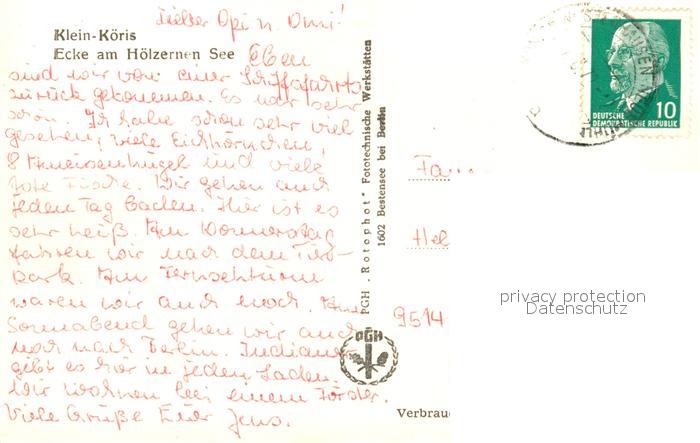 Lieber Opi u. Omi!
Klein-Köris
Ecke am Hölzernen See
Eben
sind wir von einer Schiffsfahrt
zurück gekommen. Es war sehr
schön. Ich habe schon sehr viel
gesehen, viele Eichhörnchen,
8 Ameisenhügel und viele
tote Fische. Wir gehen auch
jeden Tag baden. Hier ist es
sehr heiß. Am Donnerstag
fahren wir nach dem Tier-
park. Am Fernsehturm
waren wir auch noch. Am
Sonnabend gehen wir auch
noch nach Berlin. Indianer
gibt es hier in jedem Laden.
Wir wohnen bei einem Förster.
Viele Grüße Euer Jens.
PGH „Rotophot" Fototechnische Werkstätten
1602 Bestensee bei Berlin
PGH
DEUTSCHE
DEMOKRATISCHE REPUBLIK
10
Fa
Hel
9514
privacy protection
Datenschutz
Verbrauc